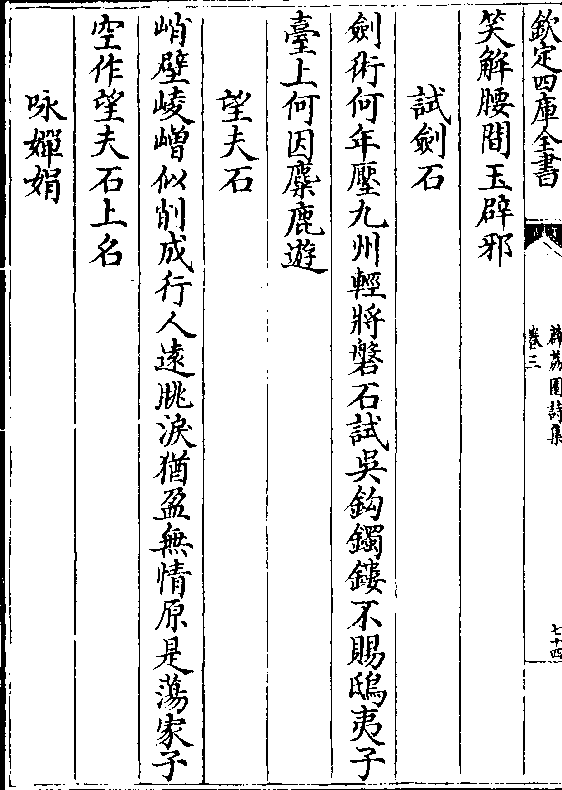 欽定四庫全書
薜荔園詩集
卷三
七十四
笑解腰間玉辟邪
試劍石
劍術何年壓九州輕將磐石試吳鈎鐲鏤不賜鴟夷子
臺上何因麋鹿遊
望夫石
峭壁崚嶒似削成行人遠眺淚猶盈無情原是蕩家子
空作望夫石上名
咏嬋娟